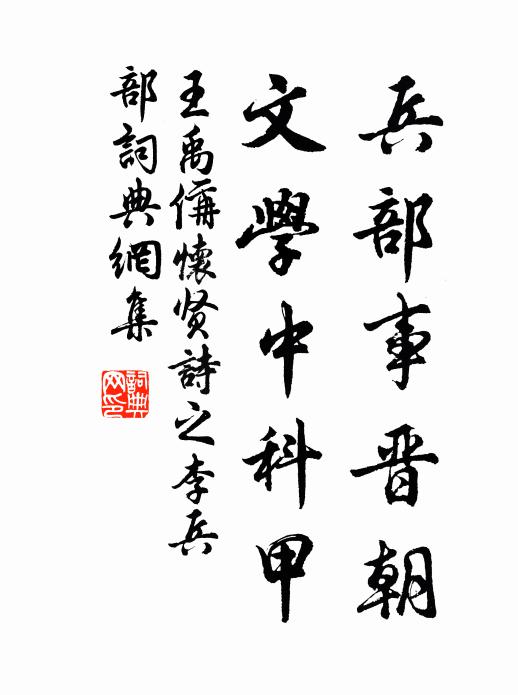 兵部事晋朝
文學中科甲
王禹偁懷贤詩之李兵
部詞典網集
詞典
网印